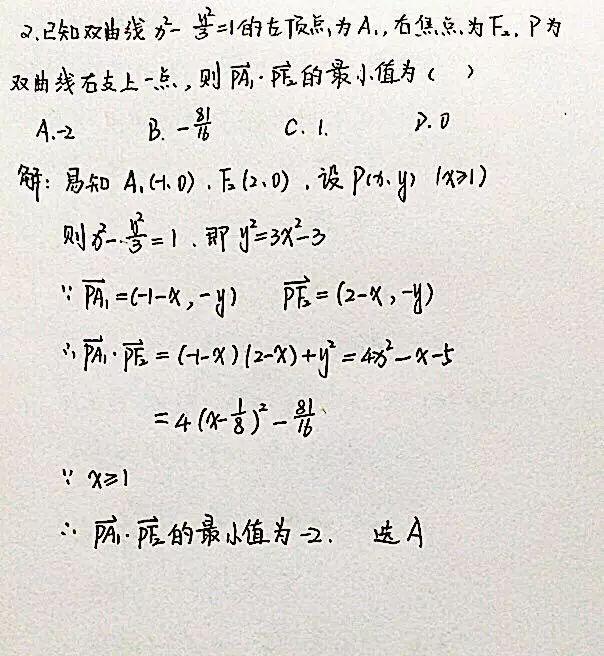 2.已知双曲线 x²-y²/3=1的左顶点为A₁,右焦点为F₂,P为
双曲线右支上一点,则PA₁·PF₂的最小值为( )
A.-2 B.-81/16 C.1. D.0
解:易知 A₁(-1,0),F₂(2,0),设P(x,y)(x≥1)
则x²-y²/3=1,即y²=3x²-3
∵PA₁=(-1-x,-y) PF₂=(2-x,-y)
∴PA₁·PF₂=(-1-x)(2-x)+y²=4x²-x-5
=4(x-1/8)²-81/16
∵ x≥1
∴ PA₁·PF₂的最小值为-2. 选A